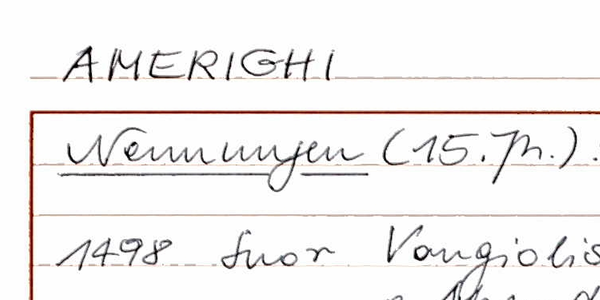 AMERIGHI
Nennungen (15. Jh.).
1498 Suor Vangiolis